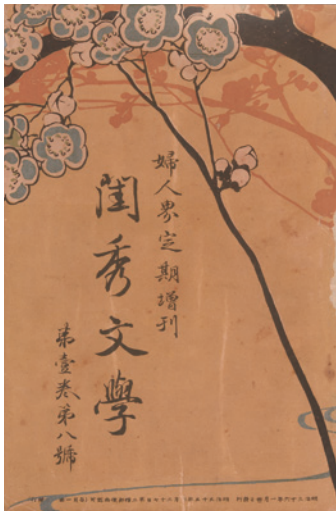 婦人界定期增刊
閨秀文學
第壹卷第八號